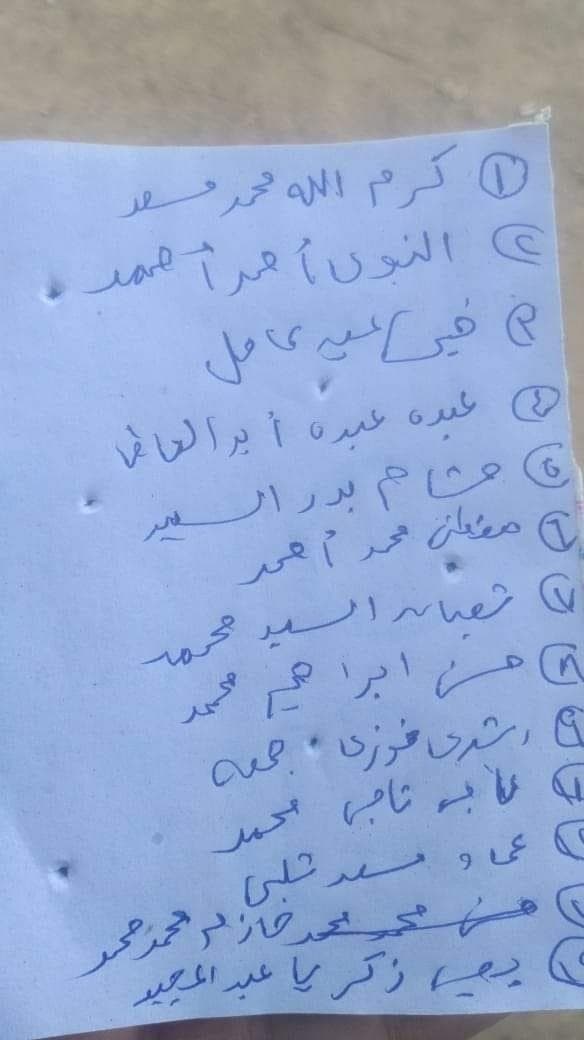 ١ كرم الله محمد مسعد
٢ النبوى أحمد أحمد
٣ خيرى عيد كامل
٤ عبده عبده أبو العاطا
٥ هشام بدر السيد
٦ محمد أحمد
٧ شعبان السيد محمد
٨ حسن ابراهيم محمد
٩ رشدى فوزى جمعه
١٠ ناجى محمد
١١ عماد مسعد شلبى
١٢ حسن محمد محمد حازم محمد محمد
١٣ زكريا عبد المجيد